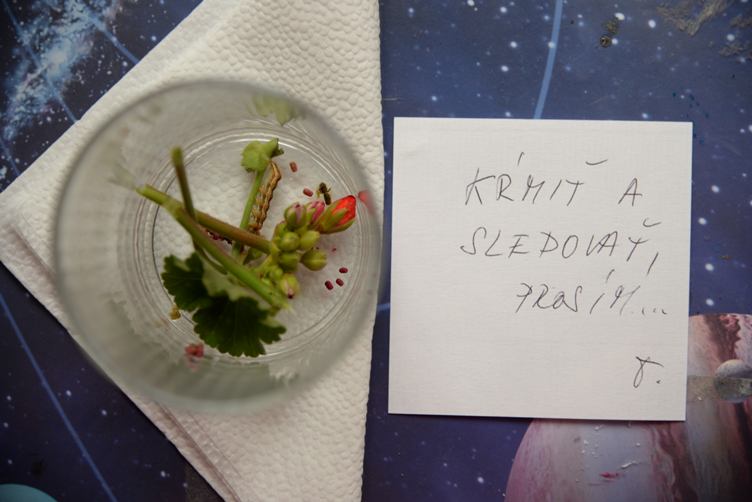 KŔMIŤ A
SLEDOVAŤ,
PROSÍM...
T.